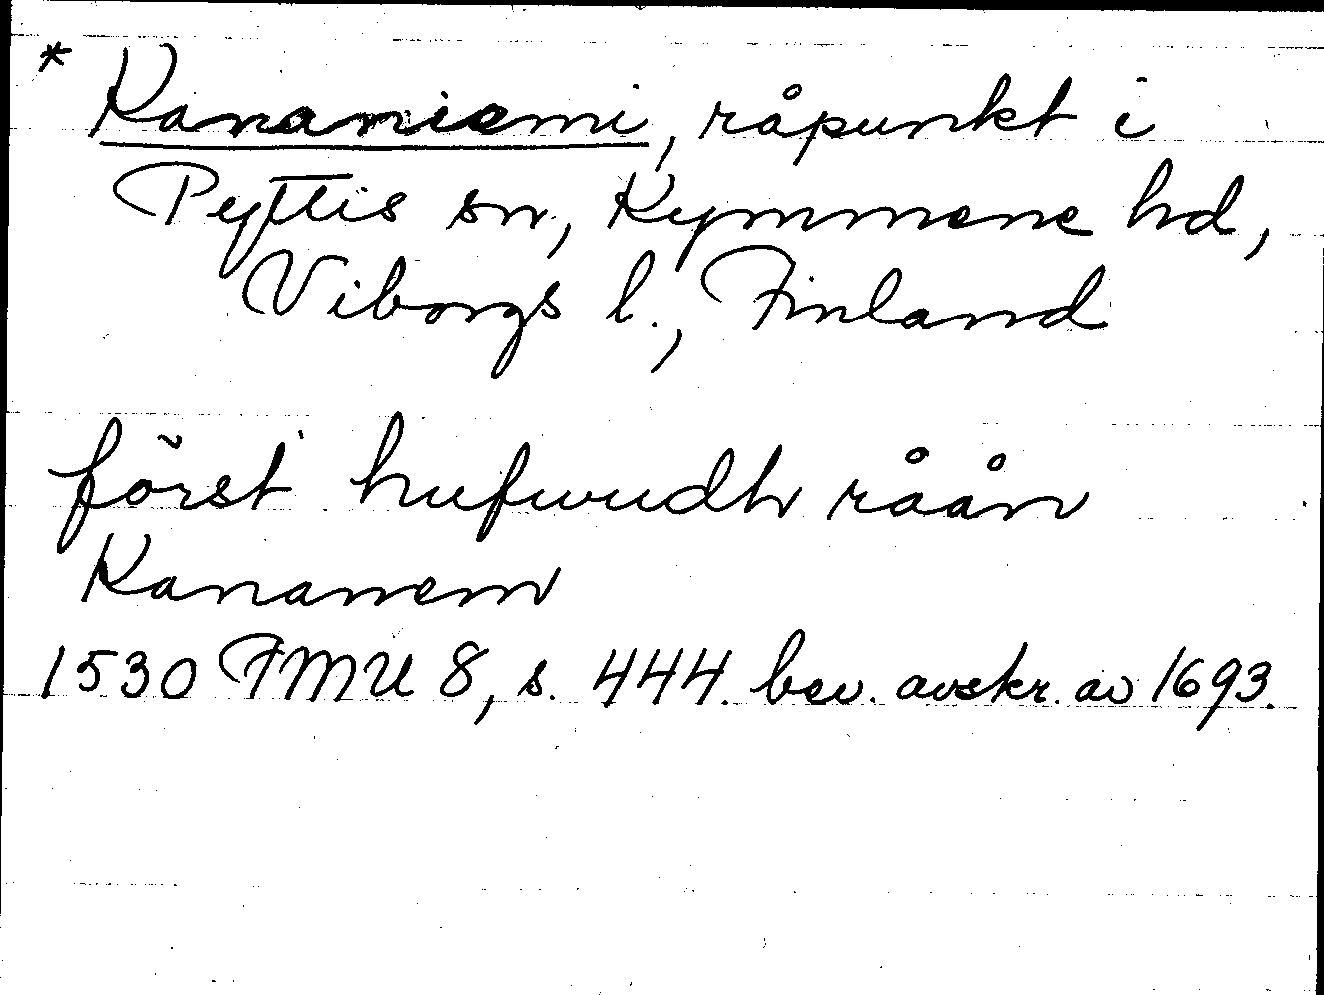 * Kananiemi, råpunkt i
Pyttis sn, Kymmene hd,
Viborgs l., Finland
först hufwudh råån
Kananem
1530 FMU 8, s. 444. bev. avskr. av 1693.